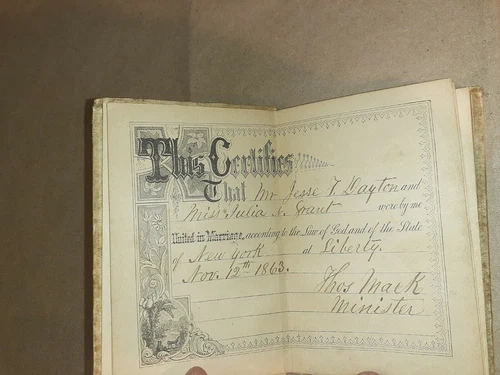 This Certifies
That Mr Jesse T. Dayton and
Miss Julia A. Grant were by me
United in Marriage, according to the Law of God and of the State
of New York at Liberty.
Nov. 12th 1863.
Thos Mack
Minister